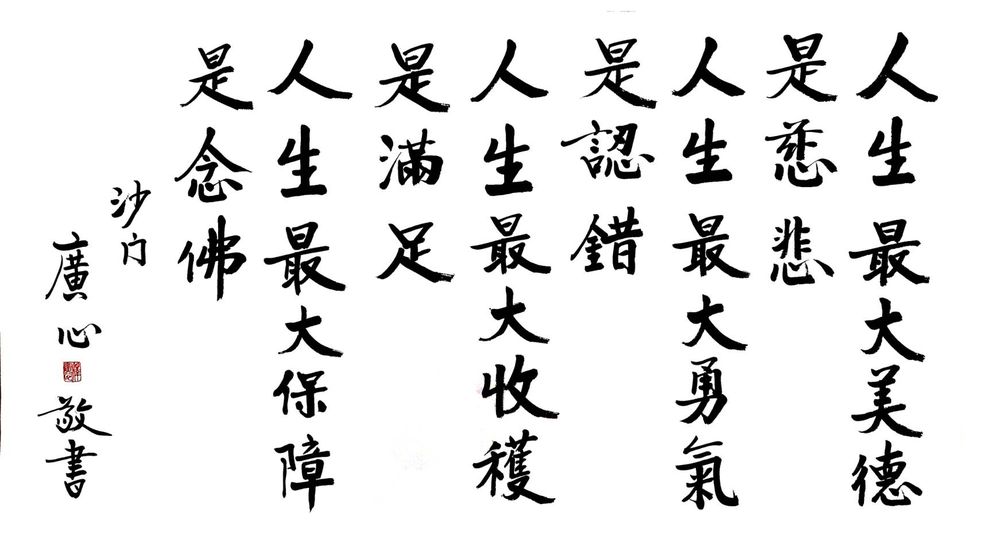 人生最大美德
是慈悲
人生最大勇氣
是認錯
人生最大收穫
是滿足
人生最大保障
是念佛
沙门
廣心敬書